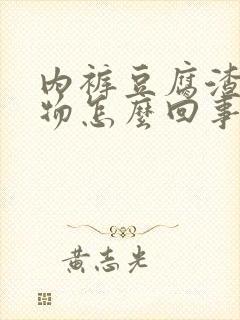 内裤豆腐渣
物怎麼回事
黄志光